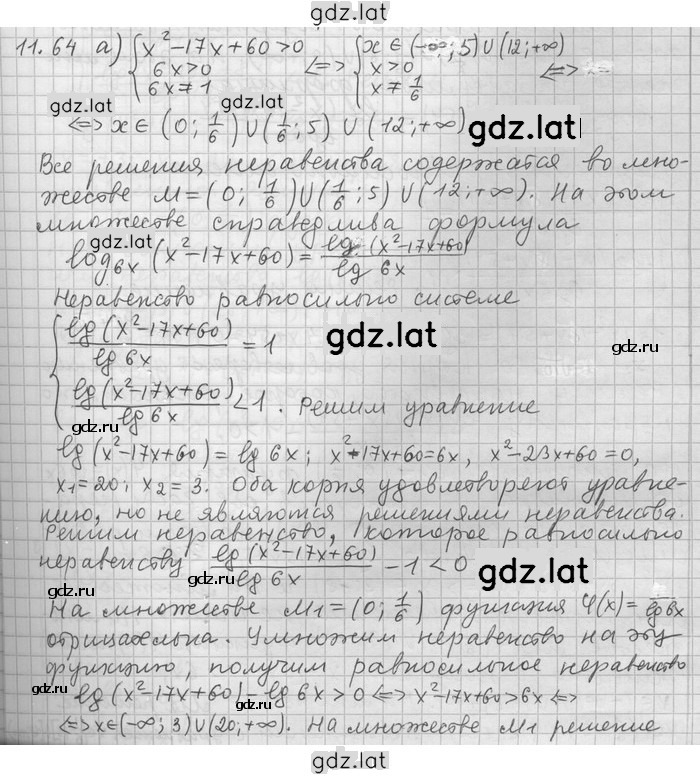 gdz.lat
11.64 а) { x² – 17x + 60 > 0 ⟺ { x ∈ (–∞; 5) ∪ (12; +∞) ⟺
6x > 0 x > 0
6x ≠ 1 x ≠ 1/6
gdz.lat
⟺ x ∈ (0; 1/6) ∪ (1/6; 5) ∪ (12; +∞) gdz.lat
Все решения неравенства содержатся во мно-
жестве M = (0; 1/6) ∪ (1/6; 5) ∪ (12; +∞). На этом
множестве справедлива формула
gdz.lat
log₆ₓ (x² – 17x + 60) = lg (x² – 17x + 60) / lg 6x
Неравенство равносильно системе
{ lg (x² – 17x + 60) / lg 6x = 1 gdz.lat
lg (x² – 17x + 60) / lg 6x < 1. Решим уравнение
gdz.ru
lg (x² – 17x + 60) = lg 6x; x² – 17x + 60 = 6x, x² – 23x + 60 = 0,
x₁ = 20; x₂ = 3. Оба корня удовлетворяют уравне-
нию, но не являются решениями неравенства.
Решим неравенство, которое равносильно
неравенству lg (x² – 17x + 60) / lg 6x – 1 < 0 gdz.lat
gdz.ru
На множестве M₁ = (0; 1/6) функция φ(x) = lg 6x
отрицательна. Умножим неравенство на эту
функцию, получим равносильное неравенство
gdz.lat
lg (x² – 17x + 60) – lg 6x > 0 ⟺ x² – 17x + 60 > 6x ⟺
⟺ x ∈ (–∞; 3) ∪ (20; +∞). На множестве M₁ решение
gdz.lat
gdz.ru
gdz.lat